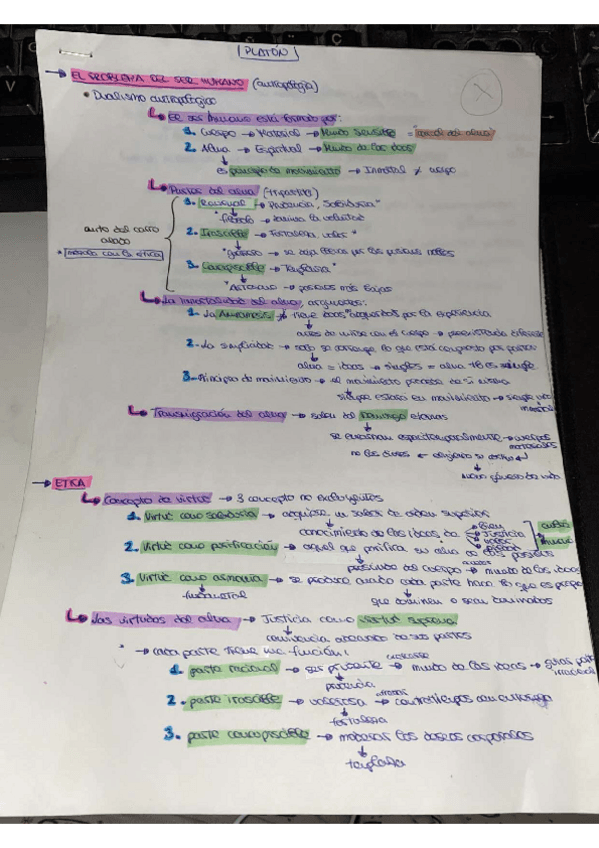 PLATÓN
→ EL PROBLEMA DEL SER HUMANO (antropología)
• Dualismo antropológico
↳ El ser humano está formado por:
1. Cuerpo → Material → Mundo Sensible = "cárcel del alma"
2. Alma → Espiritual → Mundo de las ideas
↓
es principio de movimiento → Inmortal ≠ cuerpo
↳ Partes del alma (tripartita)
1. Racional → Prudencia, Sabiduría"
"filósofo → domina la voluntad
2. Irascible → Fortaleza, valor"
→ se deja llevar por las pasiones nobles
3. Concupiscible → Templanza"
"Artesano → pasiones más bajas
mito del carro alado
* relación con la ética
↳ La inmortalidad del alma, argumentos:
1. La Anamnesis → tiene ideas adquiridas por la experiencia
antes de unirse con el cuerpo → preexistencia
2. La simplicidad → solo se corrompe lo que está compuesto por partes
alma = ideas → simples = alma tb es simple
3. Principio de movimiento → el movimiento procede de sí misma
siempre estará en movimiento → siempre
inmortal
↳ Transmigración del alma → salen del eternas
se encarnan espaciotemporalmente → cuerpos
no los dioses ← eligieron su
Nuevo género de vida
→ ETICA
↳ Concepto de virtud → 3 concepto no excluyentes
1. Virtud como sabiduría → adquirir un saber de orden superior
conocimiento de las ideas de
Bien
Justicia
Valor
2. Virtud como purificación → aquel que purifica su alma de las pasiones
prescinde del cuerpo → mundo de las ideas
3. Virtud como armonía → se produce cuando cada parte hace lo que es propio
fundamental
que dominen o sean dominados
↳ Las virtudes del alma → Justicia como virtud suprema
convivencia adecuada de sus partes
* → cada parte tiene una función:
1. parte racional → ser prudente → mundo de las ideas → guiar
prudencia
2. parte irascible → valerosa →
fortaleza
3. parte concupiscible → moderar los deseos corporales
templanza